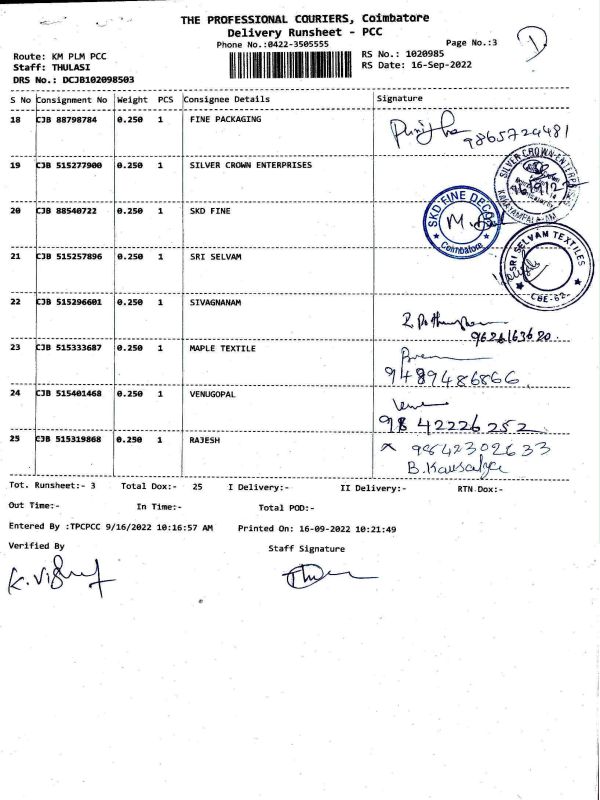 THE PROFESSIONAL COURIERS, Coimbatore
Delivery Runsheet - PCC
Phone No.:0422-3505555
Page No.:3
1
Route: KM PLM PCC
RS No.: 1020985
Staff: THULASI
RS Date: 16-Sep-2022
DRS No.: DCJB102098503
S No Consignment No Weight PCS Consignee Details Signature
18 CJB 88798784 0.250 1 FINE PACKAGING
9865724481
19 CJB 515277900 0.250 1 SILVER CROWN ENTERPRISES
SILVER CROWN ENTERPRISES
20 CJB 88540722 0.250 1 SKD FINE
SKD FINE DECOR
Coimbatore
21 CJB 515257896 0.250 1 SRI SELVAM
SRI SELVAM TEXTILES
CBE-62
22 CJB 515296601 0.250 1 SIVAGNANAM
9626163620
23 CJB 515333687 0.250 1 MAPLE TEXTILE
9489486866
24 CJB 515401468 0.250 1 VENUGOPAL
98 42226252
25 CJB 515319868 0.250 1 RAJESH
9842302633
B. Kausalya
Tot. Runsheet:- 3 Total Dox:- 25 I Delivery:- II Delivery:- RTN Dox:-
Out Time:- In Time:- Total POD:-
Entered By :TPCPCC 9/16/2022 10:16:57 AM Printed On: 16-09-2022 10:21:49
Verified By Staff Signature